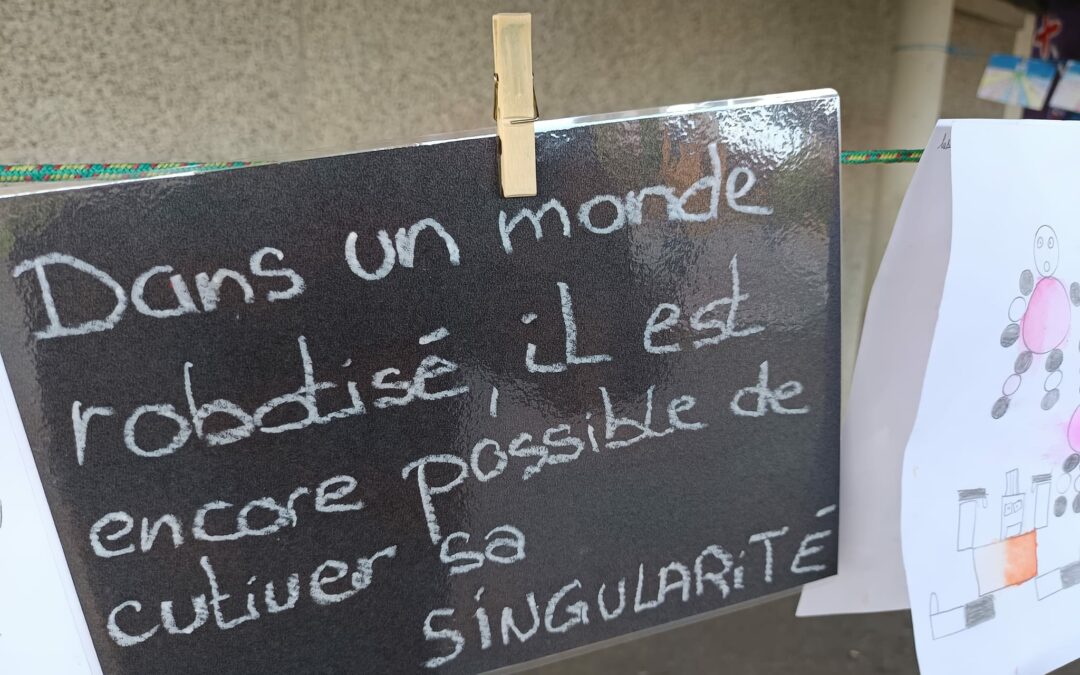 Dans un monde
robotisé, il est
encore possible de
cutiver sa
SiNGULARiTÉ